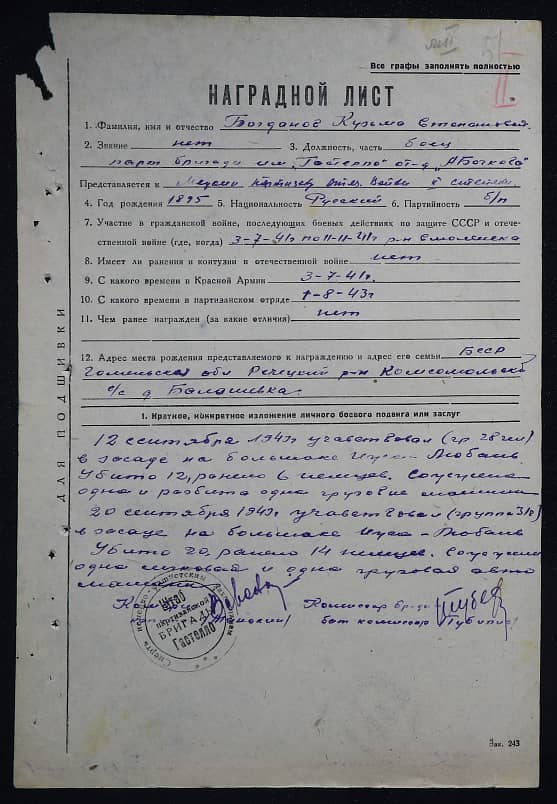 Все графы заполнять полностью
НАГРАДНОЙ ЛИСТ
1. Фамилия, имя и отчество Богданов Кузьма Степанович
2. Звание нет 3. Должность, часть боец
парт бригады им. "Гастелло" от-д
Представляется к Медали партизану отеч. войны II степени
4. Год рождения 1895 5. Национальность Русский 6. Партийность б/п
7. Участие в гражданской войне, последующих боевых действиях по защите СССР и отече-
ственной войне (где, когда) 3-7-41г по 11-11-41г р-н Смоленска
8. Имеет ли ранения и контузии в отечественной войне нет
9. С какого времени в Красной Армии 3-7-41г.
10. С какого времени в партизанском отряде 1-8-43г
11. Чем ранее награжден (за какие отличия) нет
12. Адрес места рождения представляемого к награждению и адрес его семьи БССР
Гомельская обл Речецкий р-н Комсомольский
с/с д. Балашевка
1. Краткое, конкретное изложение личного боевого подвига или заслуг
12 сентября 1943г участвовал (гр. 28 чел)
в засаде на большаке Любань
Убито 12, ранено 6 немцев. Сожжена
одна и разбита одна грузовые машины
20 сентября 1943г участвовал (группа
в засаде на большаке Любань
Убито 20, ранено 14 немцев. Сожжены
одна легковая и одна грузовая авто
машины
Комиссар бриг.
бат комиссар
Смерть немецко-фашистским оккупантам
Штаб
партизанской
БРИГАДЫ
Гастелло
ДЛЯ ПОДШИВКИ
Зак. 243